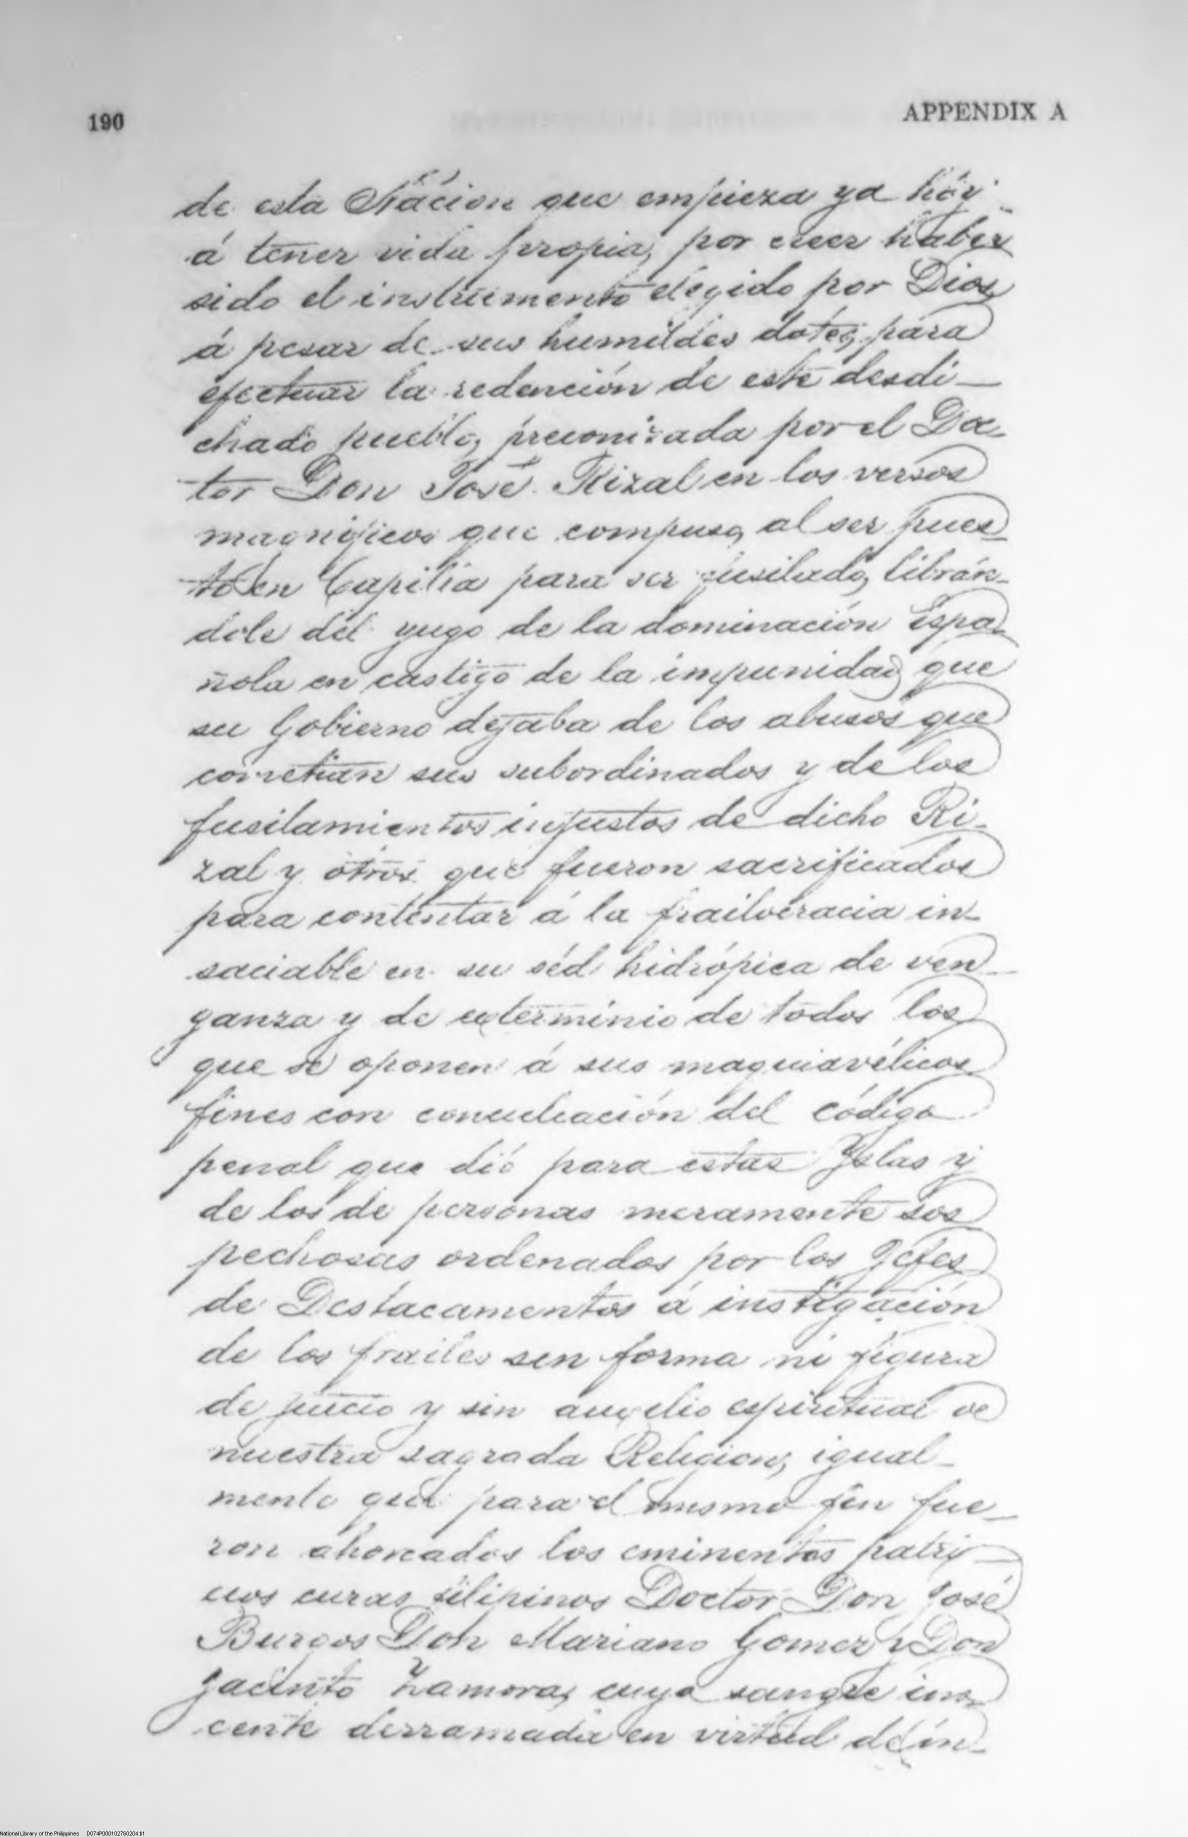 190
APPENDIX A
de esta Nación que empieza ya hoy
á tener vida propia, por creer haber
sido el instrumento elegido por Dios,
á pesar de sus humildes dotes, para
efectuar la redención de este desdi-
chado pueblo, preconizada por el Doc-
tor Don José Rizal en los versos
magnificos que compuso, al ser pues-
to en Capilla para ser fusilado, librán-
dole del yugo de la dominación Espa-
ñola en castigo de la impunidad que
su Gobierno dejaba de los abusos que
cometian sus subordinados y de los
fusilamientos injustos de dicho Ri-
zal y otros que fueron sacrificados
para contentar á la frailocracia in-
saciable en su séd hidrópica de ven-
ganza y de exterminio de todos los
que se oponen á sus maquiavélicos
fines con conculcación del código
penal que dió para estas Yslas y
de los de personas meramente sos
pechosas ordenados por los Gefes
de Destacamentos á instigación
de los frailes sin forma ni figura
de juicio y sin auxilio espiritual de
nuestra sagrada Religion, igual-
mente que para el mismo fin fue-
ron ahorcados los eminentes patri-
cios curas filipinos Doctor Don José
Burgos Don Mariano Gomez y Don
Jacinto Zamora, cuya sangre ino-
cente derramada en virtud de in-
National Library of the Philippines